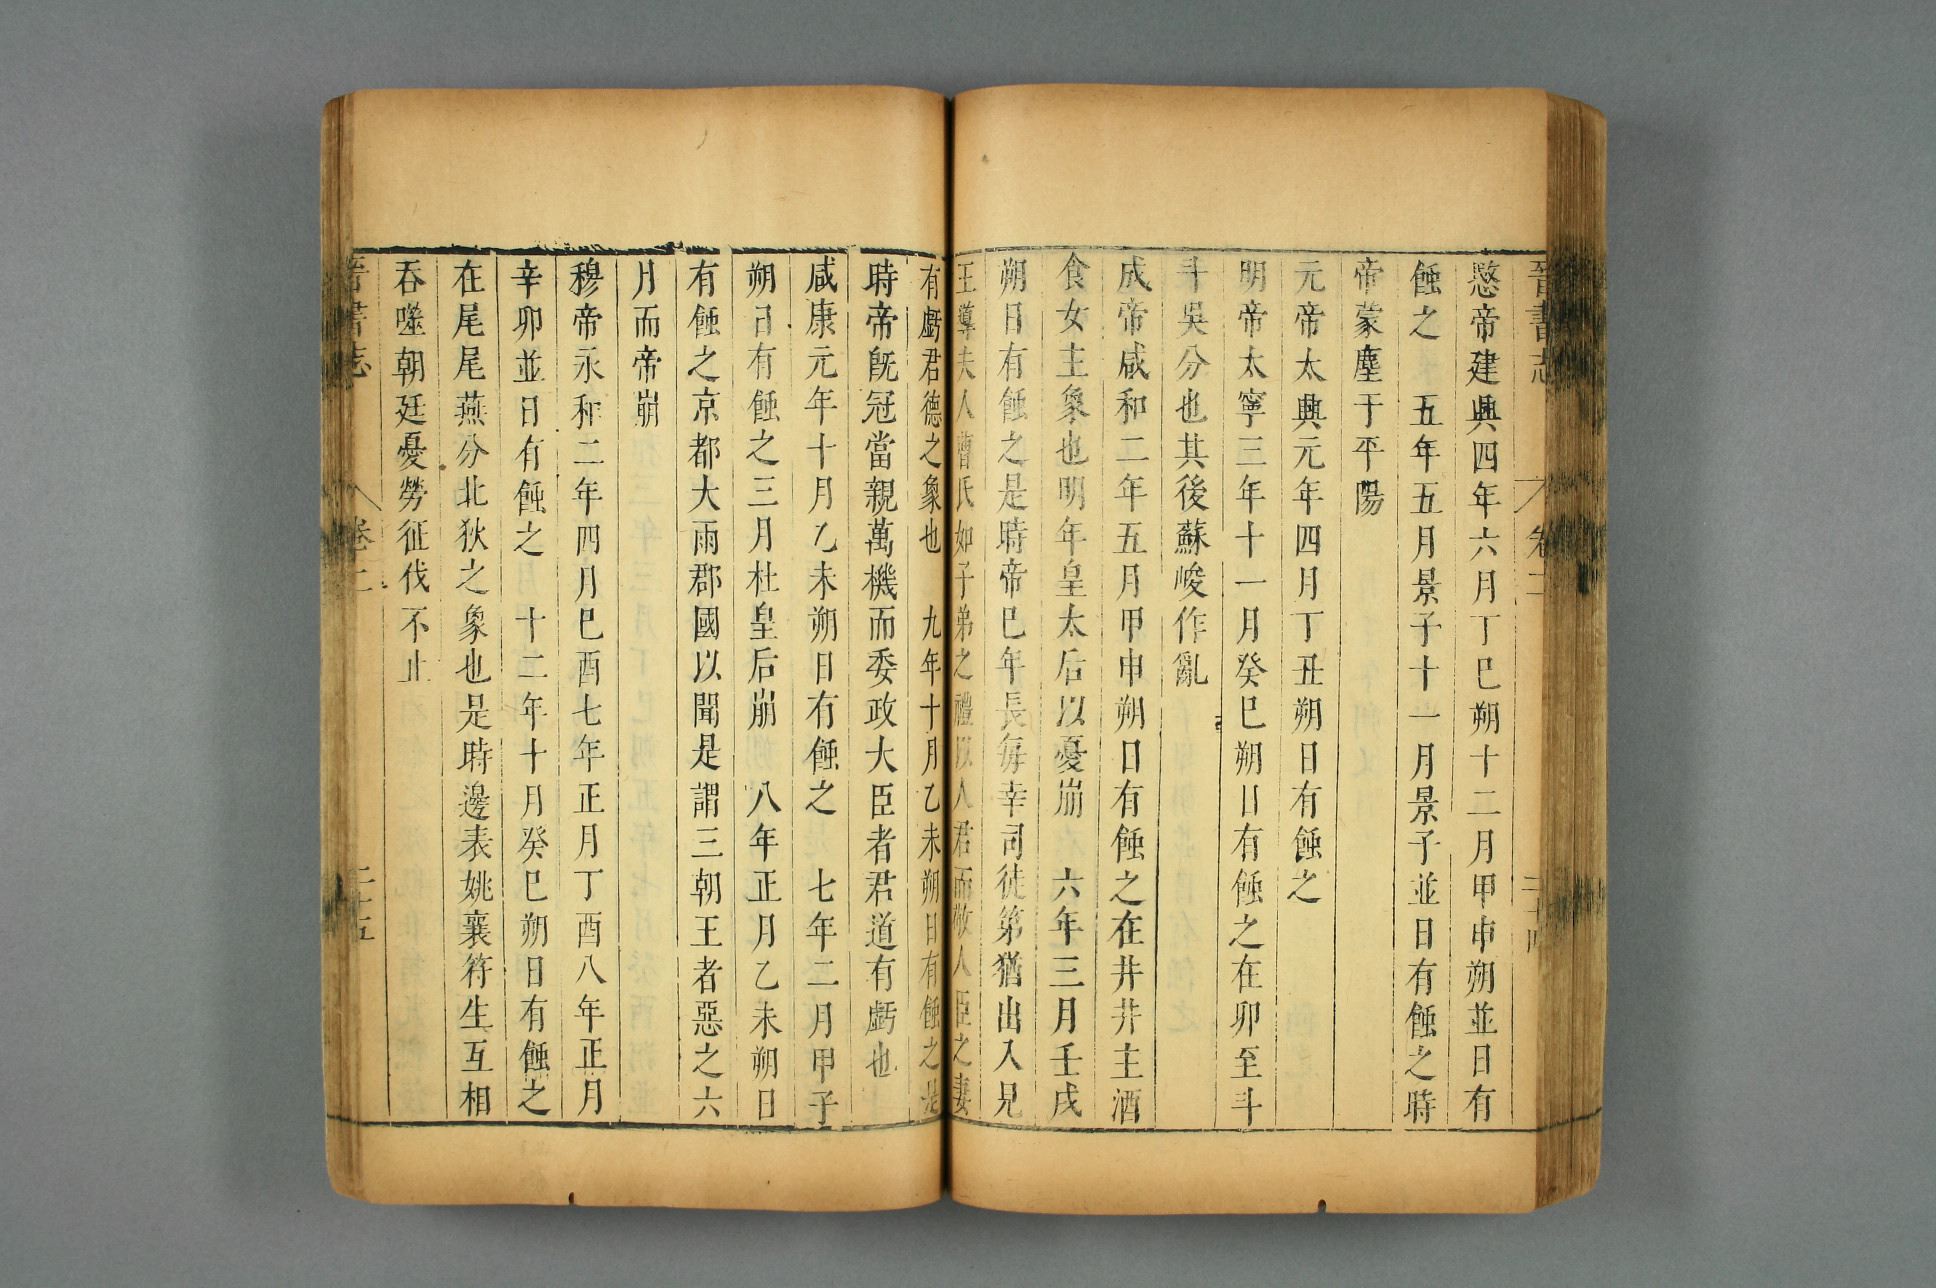 晉書志 卷二 二十四
愍帝建興四年六月丁巳朔十二月甲申朔並日有
蝕之 五年五月景子十一月景子並日有蝕之時
帝蒙塵于平陽
元帝太興元年四月丁丑朔日有蝕之
明帝太寧三年十一月癸巳朔日有蝕之在卯至斗
斗吳分也其後蘇峻作亂
成帝咸和二年五月甲申朔日有蝕之在井井主酒
食女主象也明年皇太后以憂崩 六年三月壬戌
朔日有蝕之是時帝巳年長每幸司徒第猶出入見
王導夫人曹氏如子弟之禮以人君而敬人臣之妻
有虧君德之象也 九年十月乙未朔日有蝕之是
時帝旣冠當親萬機而委政大臣者君道有虧也
咸康元年十月乙未朔日有蝕之 七年二月甲子
朔日有蝕之三月杜皇后崩 八年正月乙未朔日
有蝕之京都大雨郡國以聞是謂三朝王者惡之六
月而帝崩
穆帝永和二年四月巳酉七年正月丁酉八年正月
辛卯並日有蝕之 十二年十月癸巳朔日有蝕之
在尾尾燕分北狄之象也是時邊表姚襄苻生互相
吞噬朝廷憂勞征伐不止
晉書志 卷二 二十五